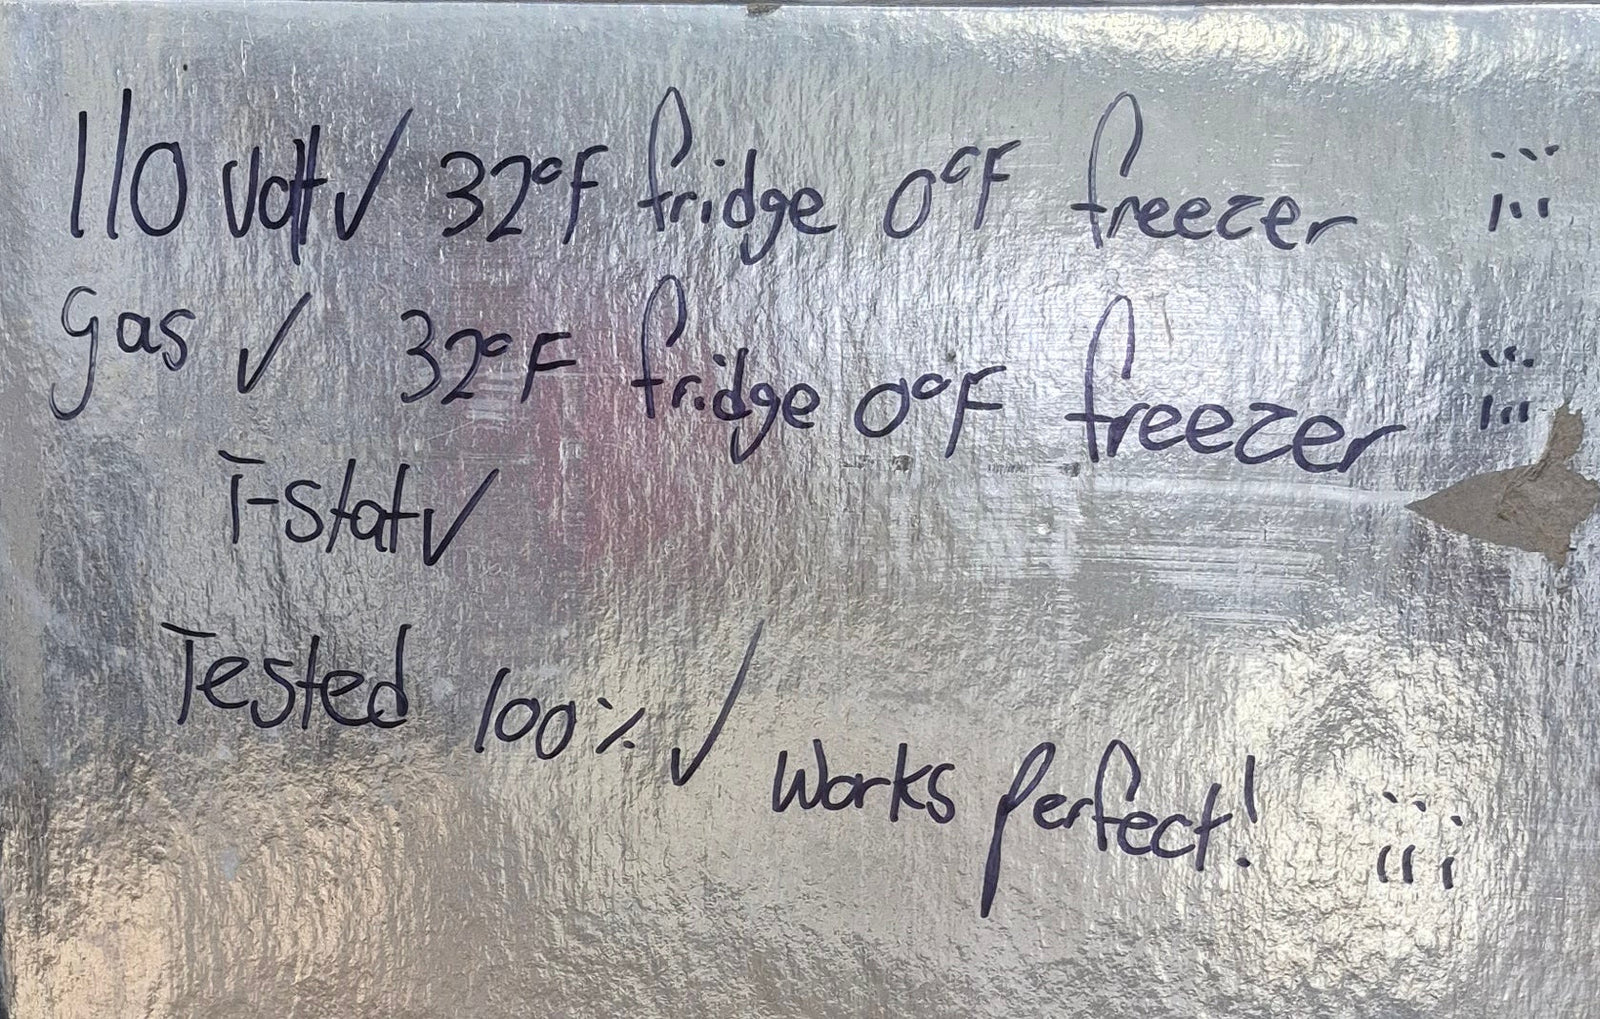 110 volt ✓ 32°F fridge 0°F freezer iii
gas ✓ 32°F fridge 0°F freezer iii
T-stat ✓
Tested 100% ✓ Works perfect! iii